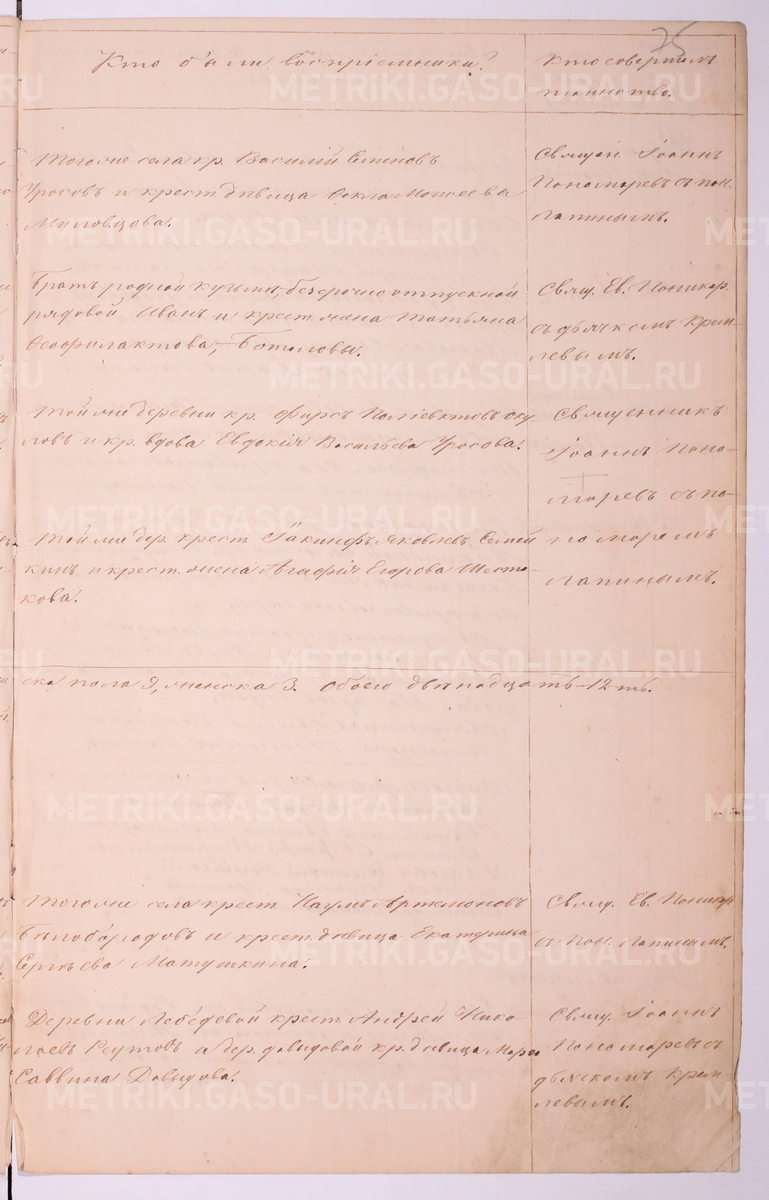 75
Кто были восприемники?
Кто совершилъ
таинство.
Тогоже села кр. Василій Семеновъ
Уросовъ и крест. дѣвица Фекла Моисеева
Миловцова.
Священ. Іоаннъ
Пономаревъ съ пон.
Лапинымъ.
Братъ родной Кузьмы, безсрочно отпускной
рядовой Иванъ и крест. жена Татьяна
Феофилактова,
Свящ. Ев. Поникар.
съ дьячкомъ Крем-
левымъ.
Той же деревни кр. Фирсъ Поліевктовъ
ловъ и кр. вдова Евдокія Васильева Уросова.
Священникъ
Іоаннъ Поно-
маревъ съ по-
номаремъ
Лапинымъ.
Той же дер. крест. Іакинфъ Яковлевъ Семей
кинъ и крест. жена Агафія Егорова Шесто-
кова.
ска пола 9, женска 3. Обоего двѣнадцать 12-ть.
Тогоже села крест. Наумъ Артамоновъ
Бѣлобородовъ и крест. дѣвица Екатерина
Сергѣева Матушкина.
Свящ. Ев. Поникар.
съ пон. Лапинымъ.
Деревни Лебедевой крест. Андрей Нико
лаевъ Реутовъ а дер. Давидовой кр. дѣвица
Саввина Давыдова.
Свящ. Іоаннъ
Пономаревъ съ
дьячкомъ Крем-
левымъ.
METRIKI.GASO-URAL.RU